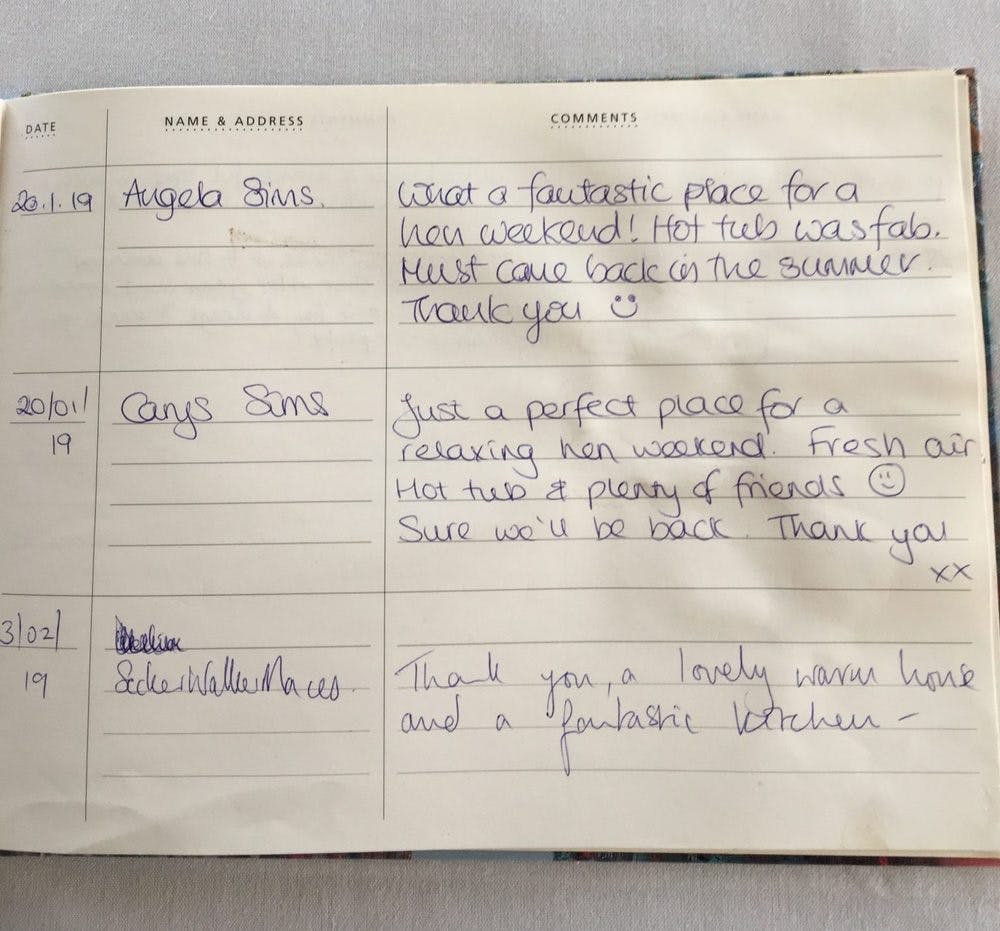 DATE
NAME & ADDRESS
COMMENTS
20.1.19
Angela Sims.
What a fantastic place for a
hen weekend! Hot tub was fab.
Must come back in the summer.
Thank you ☺
20/01/
19
Carys Sims
Just a perfect place for a
relaxing hen weekend. Fresh air
Hot tub & plenty of friends ☺
Sure we'll be back. Thank you
xx
3/02/
19
Thank you, a lovely warm house
and a fantastic kitchen –